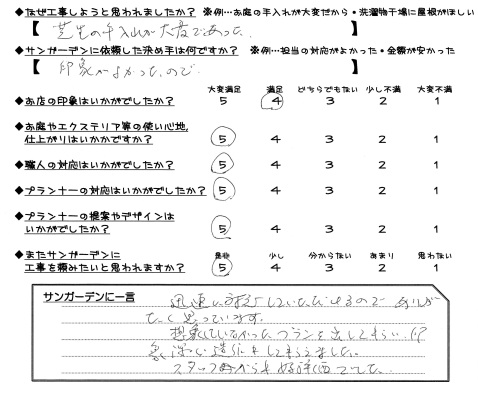 ◆なぜ工事しようと思われましたか？ ※例…お庭の手入れが大変だから・洗濯物干場に屋根がほしい
【 芝生の手入れが大変であった。 】
◆サンガーデンに依頼した決め手は何ですか？ ※例…担当の対応がよかった・金額が安かった
【 印象がよかったので。 】
大変満足 満足 どちらでもない 少し不満 大変不満
◆お店の印象はいかがでしたか？ 5 4 3 2 1
◆お庭やエクステリア等の使い心地、
仕上がりはいかがですか？ 5 4 3 2 1
◆職人の対応はいかがでしたか？ 5 4 3 2 1
◆プランナーの対応はいかがでしたか？ 5 4 3 2 1
◆プランナーの提案やデザインは
いかがでしたか？ 5 4 3 2 1
◆またサンガーデンに 是非 少し 分からない あまり 思わない
工事を頼みたいと思われますか？ 5 4 3 2 1
サンガーデンに一言
迅速に対応していただけるので ありが
たく思っています。
想像していなかったプランを出してもらい、印
象深い造作にしてもらえました。
スタッフ からも好評 でした。